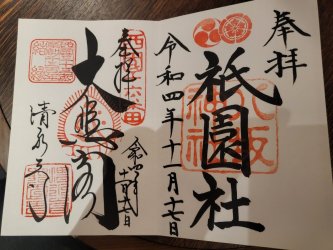 奉拝
祇園社
八坂神社
令和四年十一月十七日
奉拝
大悲閣
令和四年
十一月十七日
清水寺